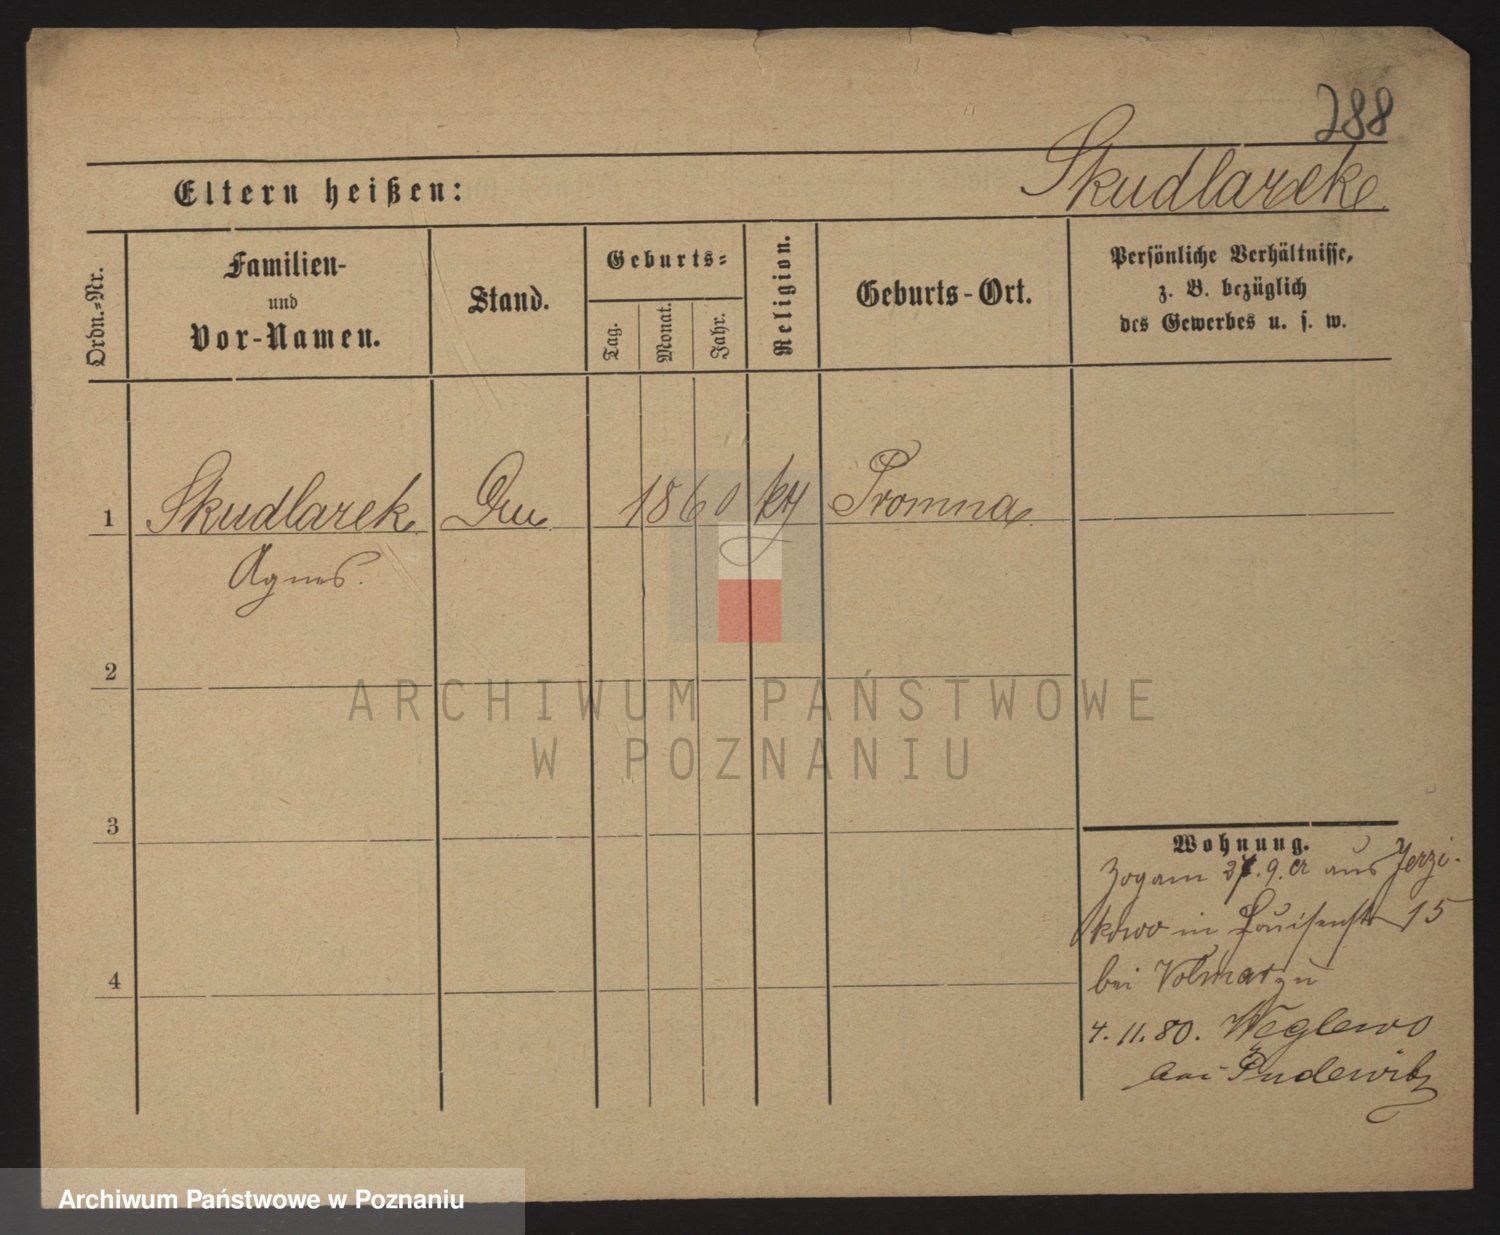 288
Skudlarek
Eltern heißen:
Ordn.-Nr.
Familien-
und
Vor-Namen.
Stand.
Geburts-
Tag.
Monat.
Jahr.
Religion.
Geburts-Ort.
Persönliche Verhältnisse,
z. B. bezüglich
des Gewerbes u. s. w.
1 Skudlarek 1860 Promna
Agnes.
2
3
4
Wohnung.
Zog am 9. cr aus Jerzi-
kowo in Louisenstr 15
bei Volmar zu
4. 11. 80. Weglewo
bei Pudewitz
ARCHIWUM PAŃSTWOWE
W POZNANIU
Archiwum Państwowe w Poznaniu